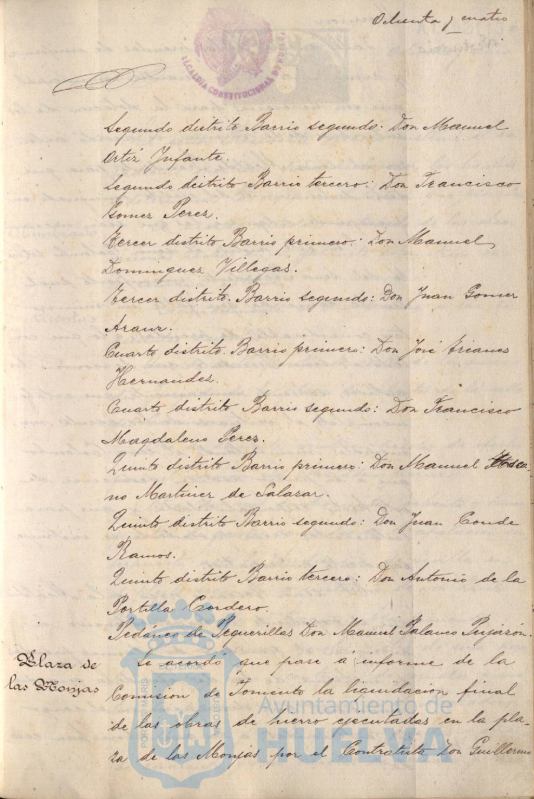 Ochenta y cuatro
ALCALDIA CONSTITUCIONAL DE HUELVA
Segundo distrito Barrio segundo: Don Manuel
Ortiz Infante.
Segundo distrito Barrio tercero: Don Francisco
Gomez Perez.
Tercer distrito Barrio primero: Don Manuel
Dominguez Villegas.
Tercer distrito. Barrio segundo: Don Juan Gomez
Arauz.
Cuarto distrito. Barrio primero: Don José
Hernandez.
Cuarto distrito Barrio segundo: Don Francisco
Magdaleno Perez.
Quinto distrito Barrio primero: Don Manuel
no Martinez de Salazar.
Quinto distrito Barrio segundo: Don Juan Conde
Ramos.
Quinto distrito Barrio tercero: Don Antonio de la
Portilla Cordero.
Pedáneo de Peguerillas Don Manuel
Plaza de
las Monjas
Se acordó que pase á informe de la
Comision de Fomento la liquidacion final
de las obras de hierro ejecutadas en la pla-
za de las Monjas por el Contratista Don Guillermo
Ayuntamiento de
HUELVA